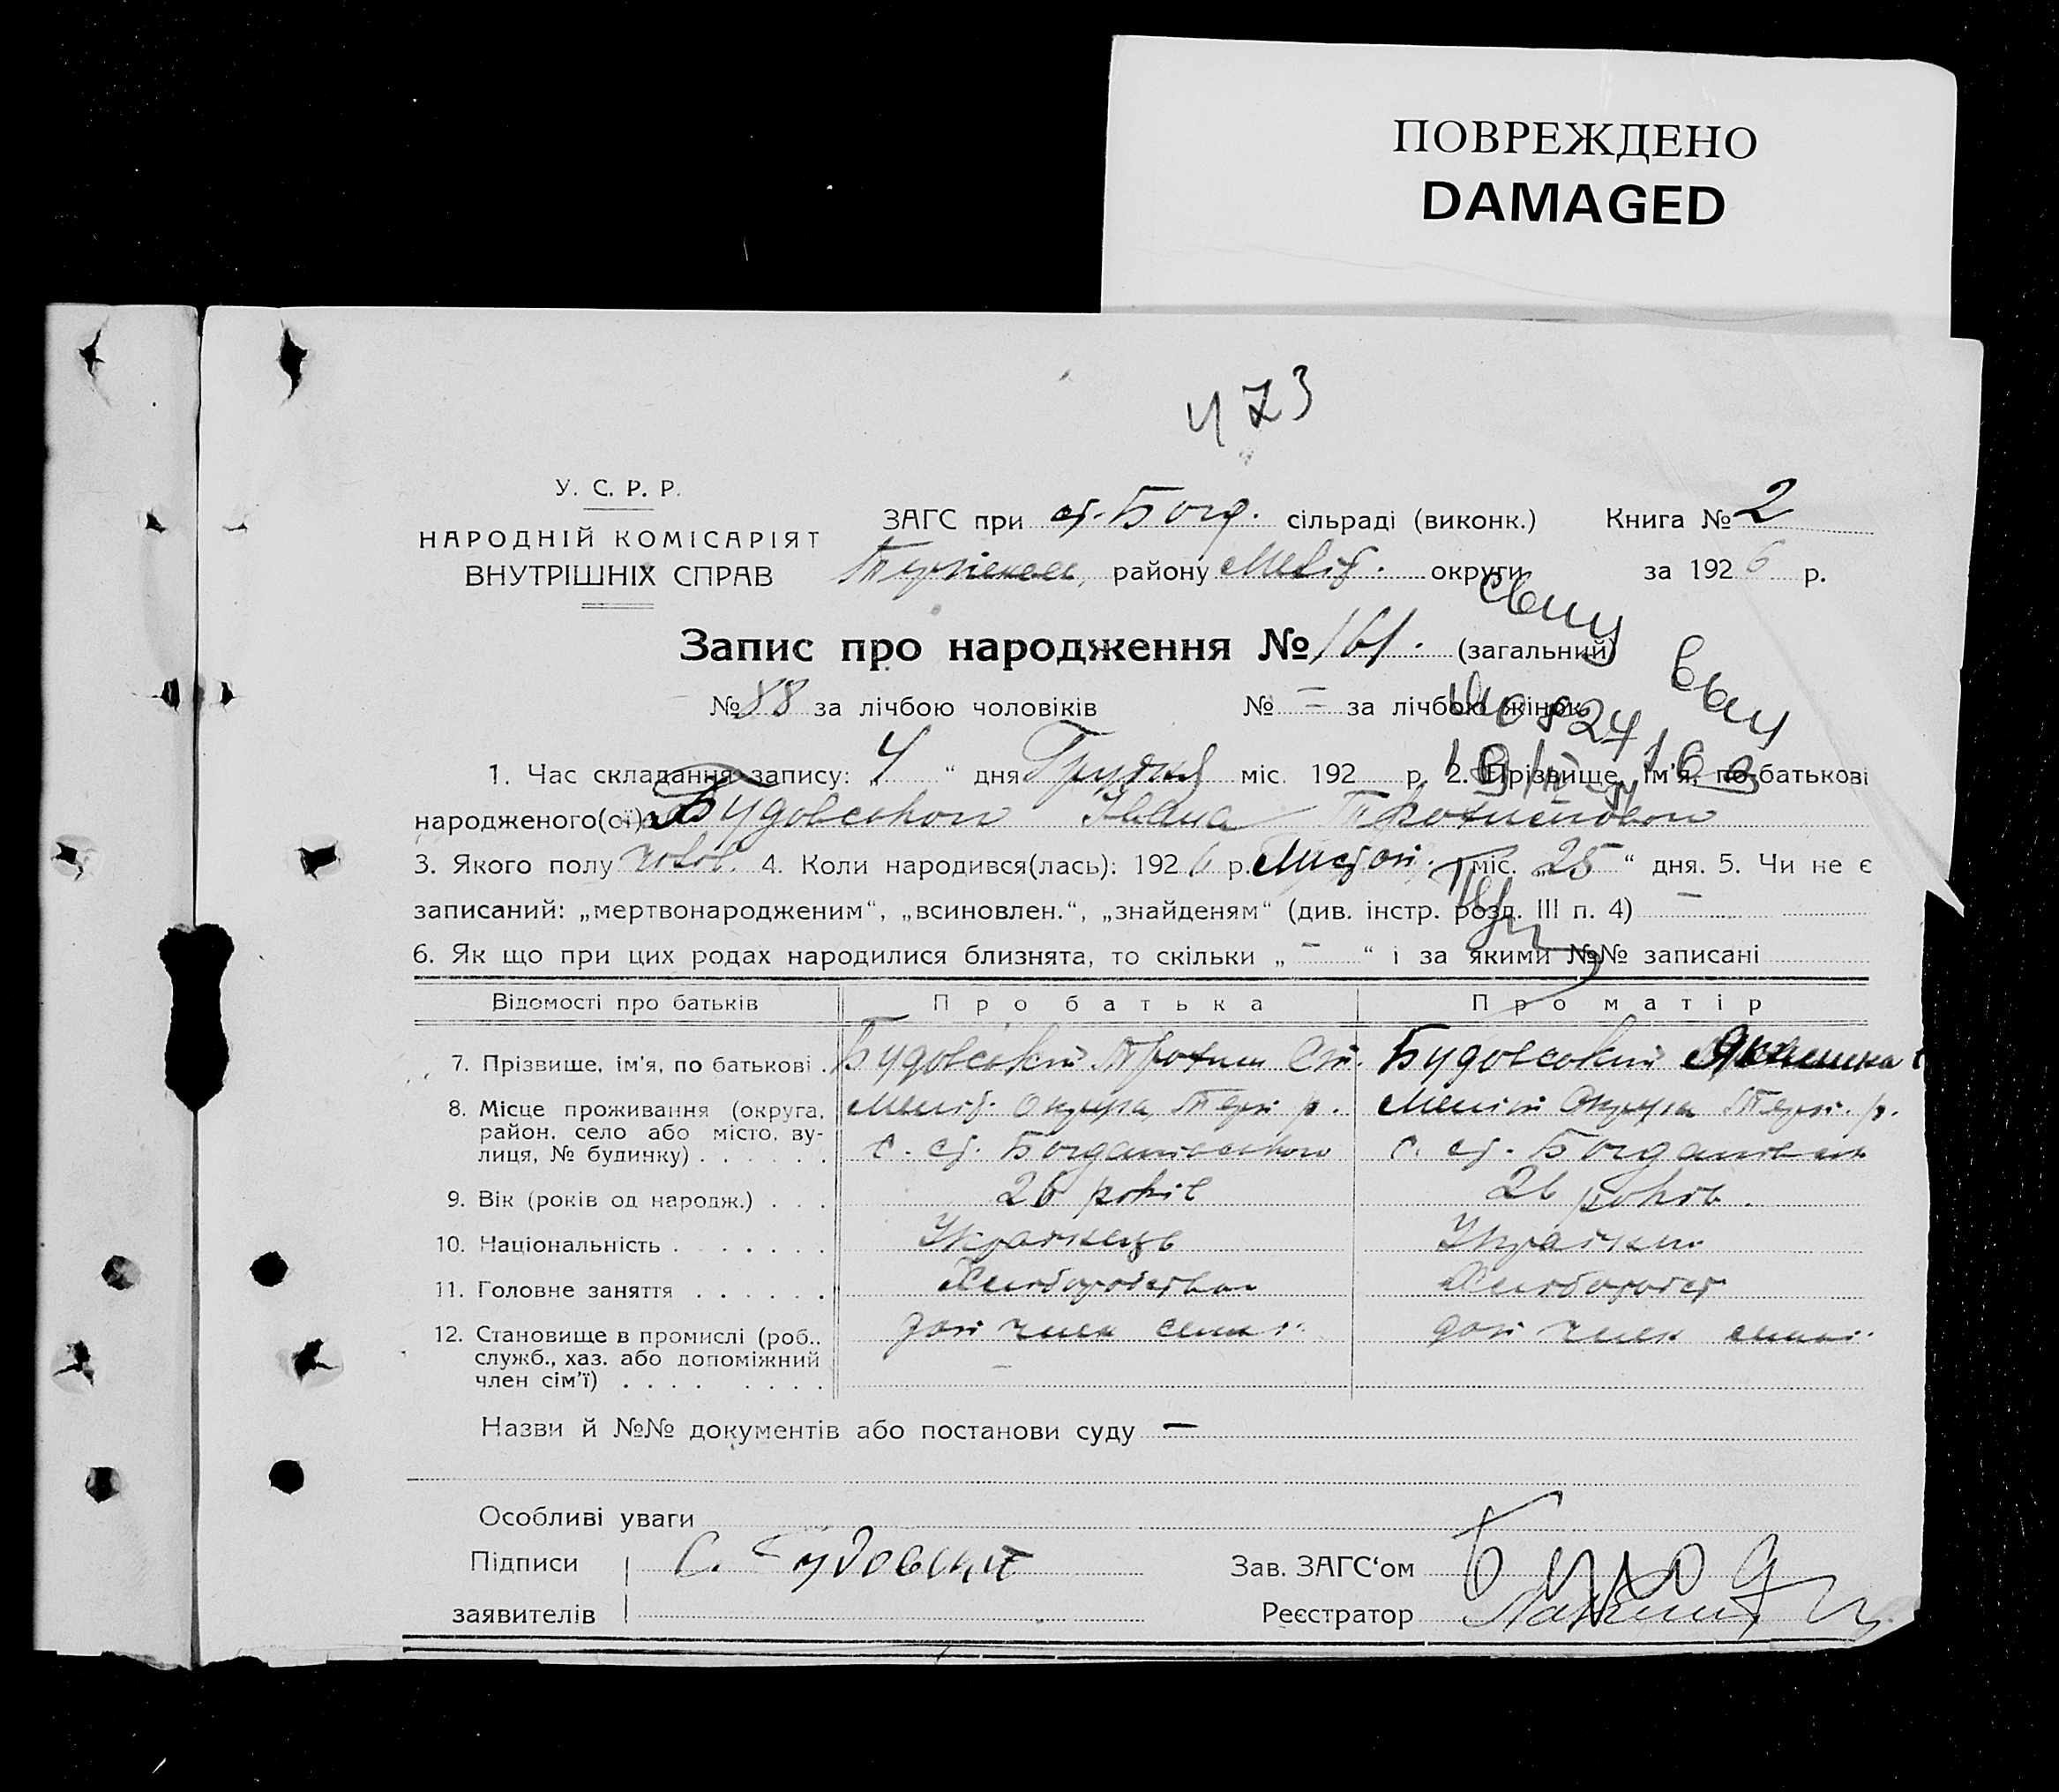 ПОВРЕЖДЕНО
DAMAGED
473
У. С. Р. Р.
НАРОДНІЙ КОМІСАРІЯТ
ВНУТРІШНІХ СПРАВ
ЗАГС при ст. Богд. сільраді (виконк.) Книга № 2
району Меліт. округи за 1926 р.
Запис про народження № 161. (загальний)
№ 88 за лічбою чоловіків № – за лічбою жінок
1. Час складання запису: „4“ дня Грудня міс. 192 р. 2. Прізвище, ім'я, по-батькові
народженого(ої) Будовського Івана Трохимовича
3. Якого полу чолов. 4. Коли народився(лась): 1926 р. Листоп. міс. „25“ дня. 5. Чи не є
записаний: „мертвонародженим“, „всиновлен.“, „знайденям“ (див. інстр. розд. III п. 4) –
6. Як що при цих родах народилися близнята, то скільки „–“ і за якими №№ записані
Відомості про батьків Про батька Про матір
7. Прізвище, ім'я, по батькові . Будовський Трохим Будовський
8. Місце проживання (округа, Меліт. Округа, р. Округа р.
район, село або місто, ву-
лиця, № будинку) . . . . . . с. ст. Богданівського с. ст.
9. Вік (років од народж.) . . . 26 років 26 років.
10. Національність . . . . . . . Українець Українка
11. Головне заняття . . . . . . Хліборобство Хлібороб
12. Становище в промислі (роб., доп член сімьї доп член сімьї
служб., хаз. або допоміжний –
член сім'ї) . . . . . . . .
Назви й №№ документів або постанови суду –
Особливі уваги
Підписи С. Зав. ЗАГС'ом
заявителів Реєстратор